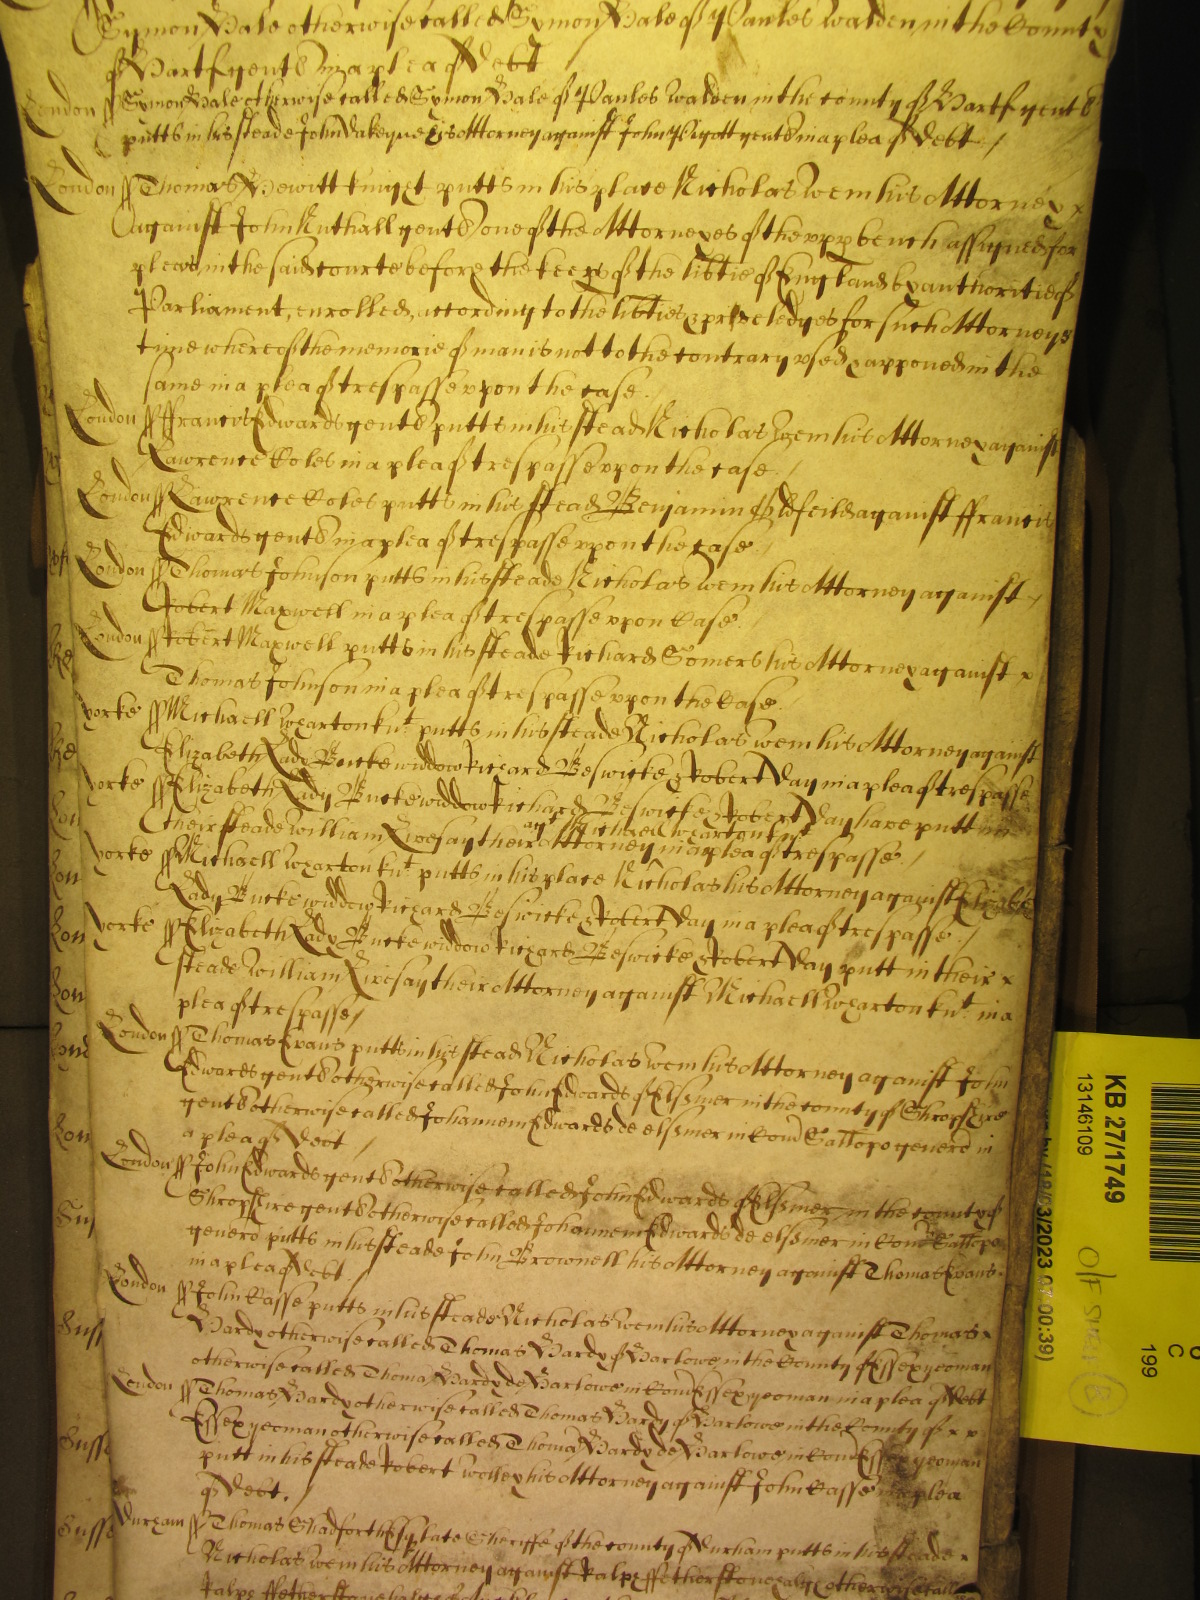 Symon Hale otherwise called Symon Hale of Paules Walden in the County
of Hartf gent in a plea of Debt
London ss Symon Hale otherwise called Symon Hale of Paules Walden in the county of Hartf gent
putts in his steade John his Attorney against John Pigott gent in a plea of Debt /
London ss Thomas Hewitt knight putts in his place Nicholas Wem his Attorney x
against John Ruthall gent one of the Attorneyes of the upp bench assigned for
pleas in the said courte before the keeps of the libtie of England by authoritie of
Parliament, enrolled, according to the libties & priveledges for such Attorneys
time whereof the memorie of man is not to the contrary used & approved in the
same in a plea of trespasse upon the case /
London ss ffrancis Edwards gent putts in his stead Nicholas Wem his Attorney against
Lawrence Coles in a plea of trespasse upon the case /
London ss Lawrence Coles putts in his stead Benjamin Oldfeild against ffrancis
Edwards gent in a plea of trespasse upon the case /
London ss Thomas Johnson putts in his steade Nicholas Wem his Attorney against /
Robert Maxwell in a plea of trespasse upon Case /
London ss Robert Maxwell putts in his steade Richard Somers his Attorney against x
Thomas Johnson in a plea of trespasse upon the Case /
yorke ss Michaell Wharton knt putts in his steade Nicholas Wem his Attorney against
Elizabeth Lady Bucke widdow Richard Beswicke & Robert Day in a plea of trespasse
yorke ss Elizabeth Lady Bucke widdow Richard Beswicke & Robert Day have putt in
their steade William Livesay their Attorney agt Michaell Wharton knt in a plea of trespasse /
yorke ss Michaell Wharton knt putts in his place Nicholas his Attorney against Elizabeth
Lady Bucke widdow Richard Beswicke & Robert Day in a plea of trespasse /
yorke ss Elizabeth Lady Bucke widdow Richard Beswicke & Robert Day putt in their x
steade William Livesay their Attorney against Michaell Wharton knt in a
plea of trespasse /
London ss Thomas Evans putts in his stead Nicholas Wem his Attorney against John
Edwards gent otherwise called John Edwards of Elsmer in the county of Shropshire
gent otherwise called Johannem Edwards de elsmer in Com Sallopp generd in
a plea of Debt /
London ss John Edwards gent otherwise called John Edwards of Elsmer in the county of
Shropshire gent otherwise called Johannem Edwards de elsmer in Com Sallopp
generd putts in his steade John Brownell his Attorney against Thomas Evans
in a plea of Debt /
London ss John Casse putts in his steade Nicholas Wem his Attorney against Thomas x
Hardy otherwise called Thomas Hardy of Harlowe in the County of Essex yeoman
otherwise called Thoma Hardy de Harlowe in Com Essex yeoman in a plea of Debt
London ss Thomas Hardy otherwise called Thomas Hardy of Harlowe in the County of x x
Essex yeoman otherwise called Thoma Hardy de Harlowe in Com Essex yeoman
putt in his steade Robert Wolley his Attorney against John Casse in a plea
of Debt.
Durham ss Thomas Shadforth Esq late Sheriffe of the county of Durham putts in his steade x
Nicholas Wem his Attorney against Ralph ffetherstonehalgh otherwise called
KB 27/1749
13146109
O/F SIZE (B)
C
199
/03/2023 07:00:39)